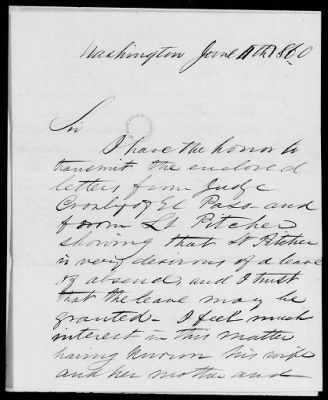 Washington June 11th 1860
Sir
I have the honor to
transmit the enclosed
letters from Judge
Crosby of El Paso and
from Lt Pitcher
showing that Lt Pitcher
is very desirous of a leave
of absence, and I trust
that the leave may be
granted - I feel much
interest in this matter
having known his wife
and her mother and